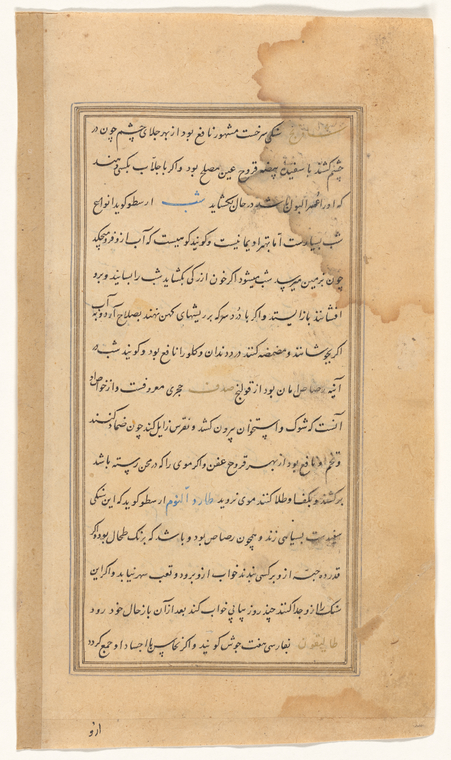 سنکی سرخست مشهور نافع بود از بهر جلای چشم چون در
چشم کشند با سفیده بیضه قروح عین مصلح بود و اکر با جلاب بکسی دهند
که او را عسر البول باشد در حال بکشاید شب ارسطو کوید انواع
شب بسیارست اما بهترا و یمانیست و کویند کوهیست که آب ازو فرو میچکد
چون بزمین میرسد شب میشود اکر خون از رکی بکشاید شب را بسایند و برو
افشانند باز ایستد و اکر با درد سرکه بر ریشهای کهن نهند بصلاح آرد و به آب
اکر بجوشانند و مضمضه کنند درد دندان و کلو را نافع بود و کویند شب در
آنیه رصاص امان بود از قولنج صدف حجری معروفست و از خواص او
آنست که شوک و استخوان بیرون کشد و نقرس زایل کند چون ضماد کنند
و لحم او نافع بود از بهر قروح عفن و اکر موی را که در محن رسته باشد
برکشند و بکف او طلا کنند موی نروید طارد النوم ارسطو کوید که این سنکی
سفیدست بسیاهی زند و همچون رصاص بود و باشد که برنک طحال بود اکر
قدر ده حبه ازو بر کسی بندند خواب ازو برود و تعب سهر نیابد و اکر این
سنک را ازو جدا کنند چند روز پیاپی خواب کند بعد از آن باز حال خود رود
طالیقون بفارسی هفت جوش کویند و اکر نحاس را با اجساد او جمع کردد
ازو